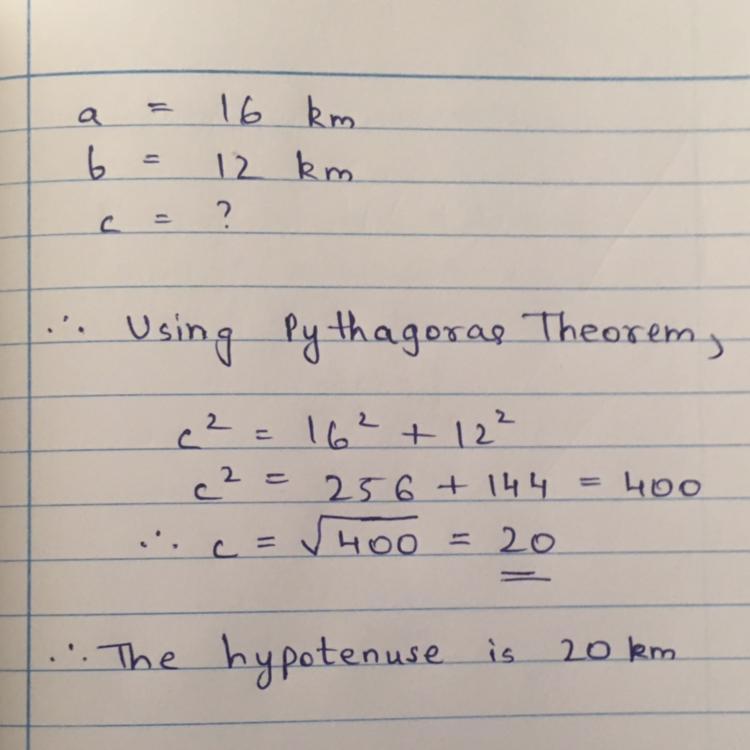 a = 16 km
b = 12 km
c = ?
∴ Using Pythagoras Theorem,
c² = 16² + 12²
c² = 256 + 144 = 400
∴ c = √400 = 20
∴ The hypotenuse is 20 km